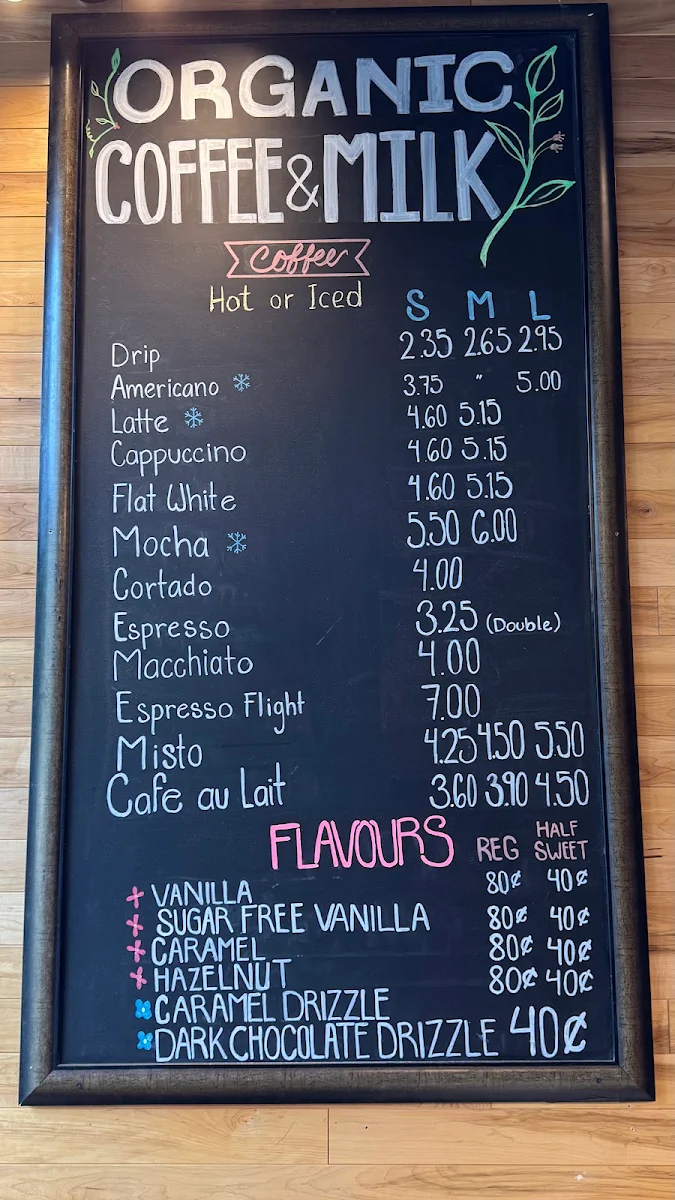 ORGANIC
COFFEE & MILK
Coffee
Hot or Iced S M L
Drip 2.35 2.65 2.95
Americano 3.75 " 5.00
Latte 4.60 5.15
Cappuccino 4.60 5.15
Flat White 4.60 5.15
Mocha 5.50 6.00
Cortado 4.00
Espresso 3.25 (Double)
Macchiato 4.00
Espresso Flight 7.00
Misto 4.25 4.50 5.50
Cafe au Lait 3.60 3.90 4.50
FLAVOURS REG HALF SWEET
VANILLA 80¢ 40¢
SUGAR FREE VANILLA 80¢ 40¢
CARAMEL 80¢ 40¢
HAZELNUT 80¢ 40¢
CARAMEL DRIZZLE
DARK CHOCOLATE DRIZZLE 40¢